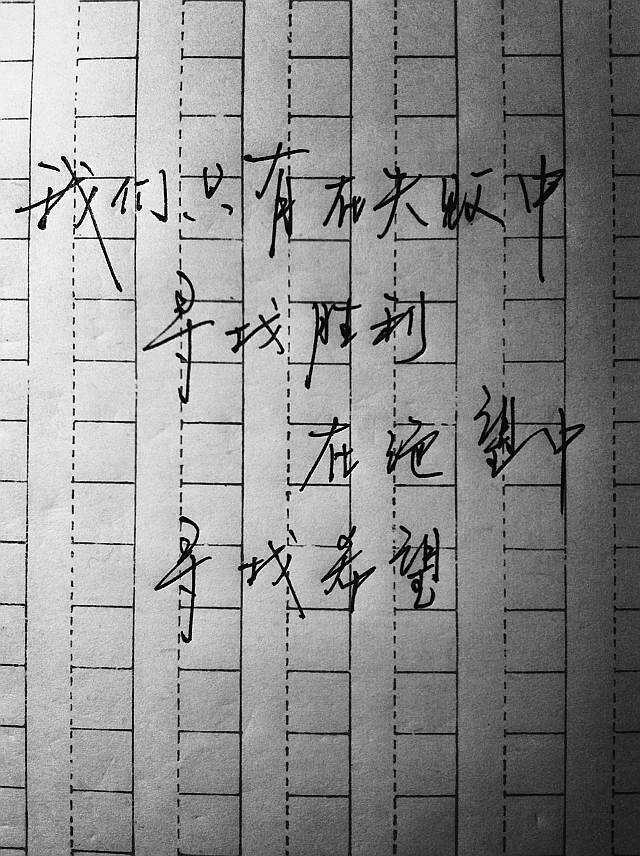 我们只有在失败中
寻找胜利
在绝望中
寻找希望